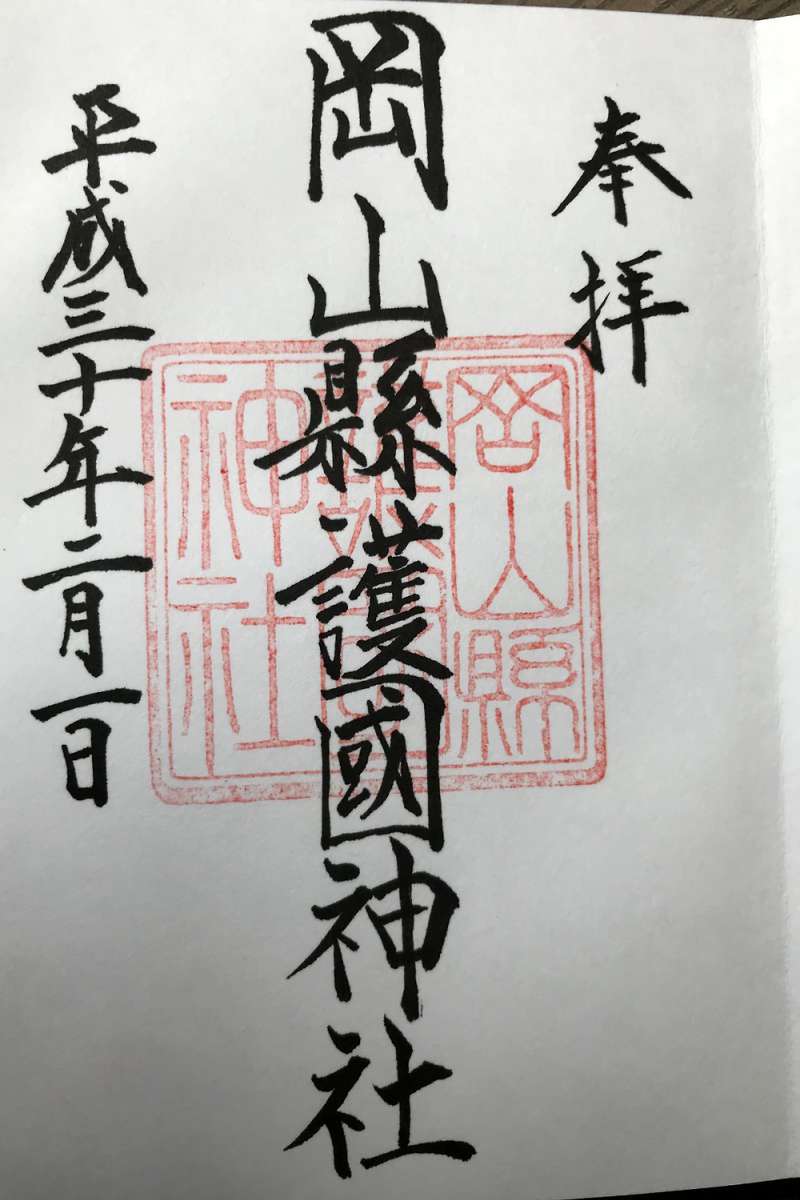 奉拝
岡山縣護國神社
平成三十年二月一日
岡山縣
護國
神社